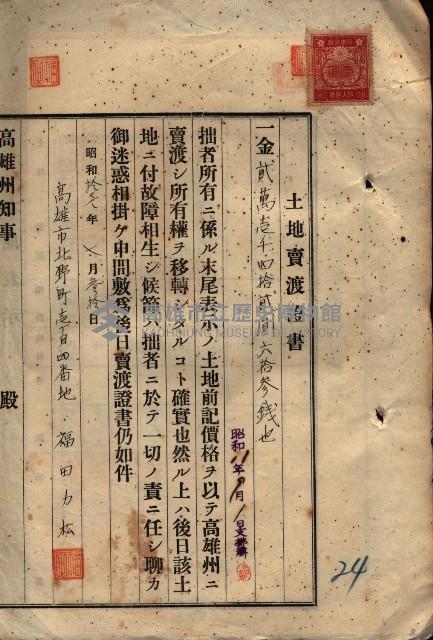 土地賣渡證書
一金貳萬壹千四拾貳圓六拾參錢也
昭和11年9月1日支拂濟
拙者所有ニ係ル末尾表示ノ土地前記價格ヲ以テ高雄州ニ
賣渡シ所有權ヲ移轉シタルコト確實也然ル上ハ後日該土
地ニ付故障相生シ候節ハ拙者ニ於テ一切ノ責ニ任シ聊カ
御迷惑相掛ケ申間敷爲後日賣渡證書仍如件
昭和拾 年 月參拾日
高雄市北野町壱百四番地 福田力松
高雄州知事 殿
高雄市立歷史博物館
KAOHSIUNG MUSEUM OF HISTORY
24